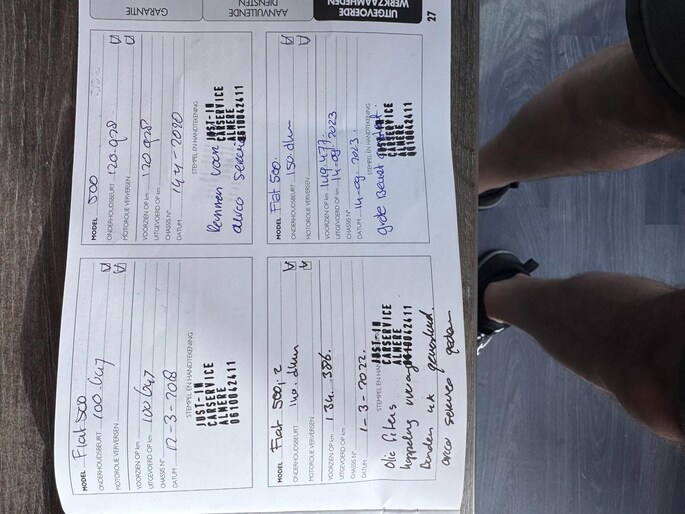 UITGEVOERDE
WERKZAAMHEDEN
AANVULLENDE
DIENSTEN
GARANTIE
27
MODEL Fiat 500
ONDERHOUDSBEURT 100.647
MOTOROLIE VERVERSEN
VOORZIEN OP km
UITGEVOERD OP km 100.647
CHASSIS N°
DATUM 12-3-2018
STEMPEL EN HANDTEKENING
JUST-IN
CARSERVICE
ALMERE
0610042411
MODEL 500
ONDERHOUDSBEURT 120.928
MOTOROLIE VERVERSEN
VOORZIEN OP km
UITGEVOERD OP km 120.928
CHASSIS N°
DATUM
STEMPEL EN HANDTEKENING
Remmen voor
JUST-IN
CARSERVICE
ALMERE
0610042411
airco
MODEL Fiat 500,
ONDERHOUDSBEURT 140.dkm
MOTOROLIE VERVERSEN
VOORZIEN OP km
UITGEVOERD OP km 134.386.
CHASSIS N°
DATUM 1-3-2022.
STEMPEL EN HANDTEKENING
Olie filters
JUST-IN
CARSERVICE
ALMERE
0610042411
koppeling
banden
airco service gedaan
MODEL Fiat 500.
ONDERHOUDSBEURT 150.dkm
MOTOROLIE VERVERSEN
VOORZIEN OP km 149.477.
UITGEVOERD OP km 14-09-2023
CHASSIS N°
DATUM 14-09-2023.
STEMPEL EN HANDTEKENING
grote Beurt
JUST-IN
CARSERVICE
ALMERE
0610042411